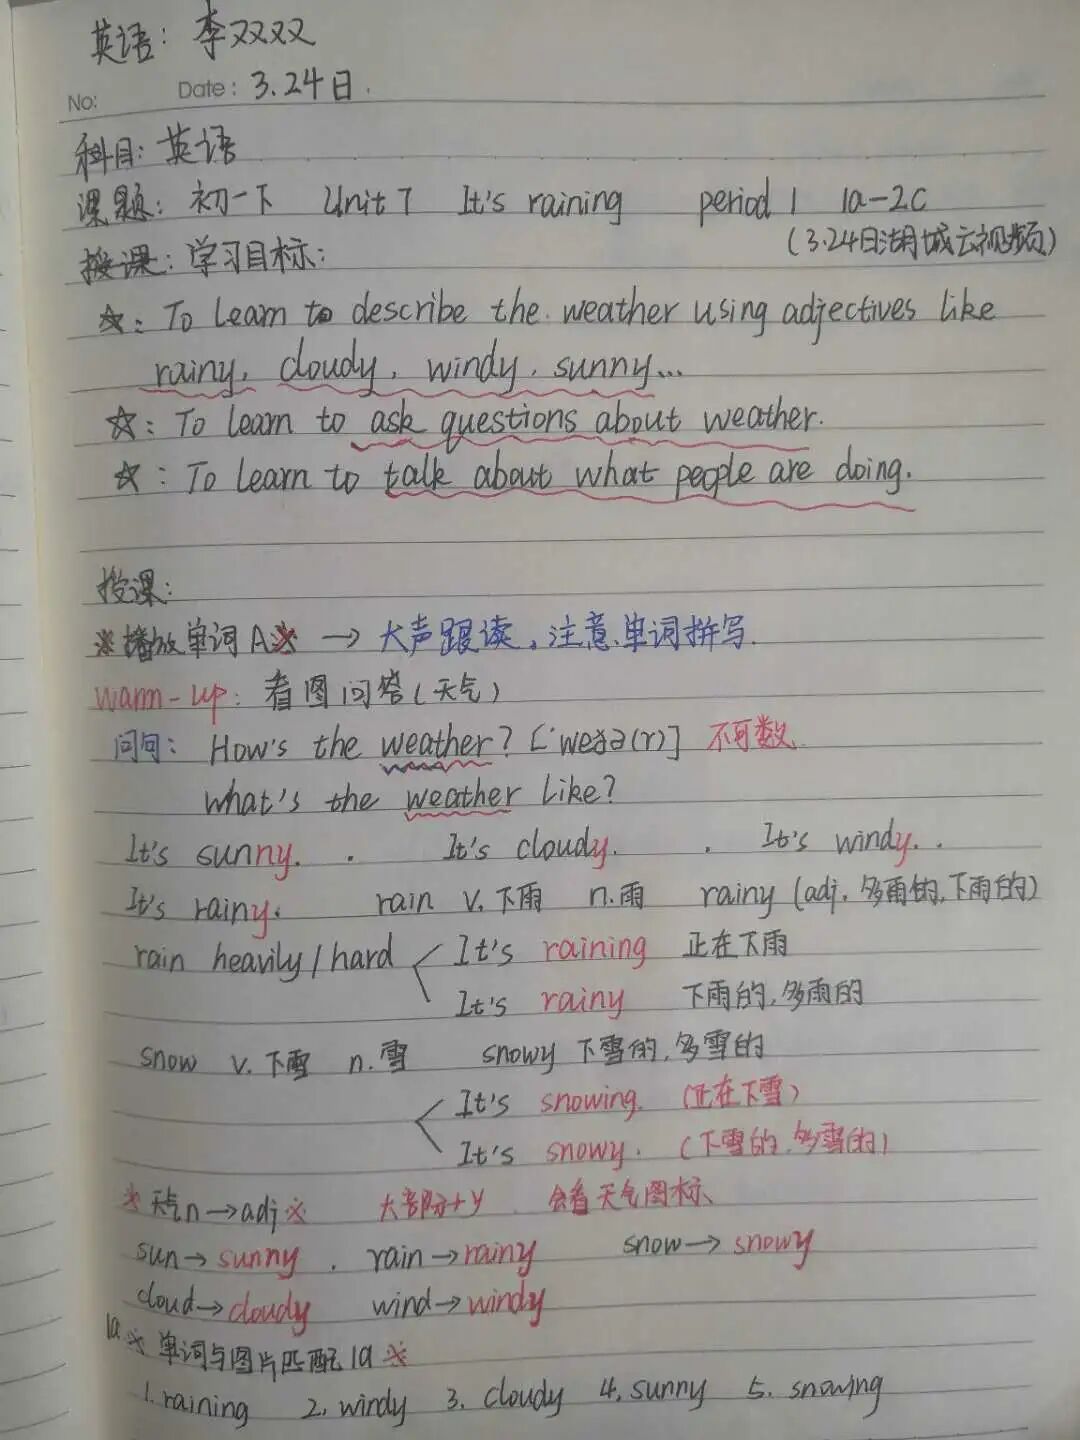 英语: 李双双
No: Date: 3.24日.
科目: 英语
课题: 初一下 Unit 7 It's raining period 1 1a-2c
(3.24日湖城云视频)
授课: 学习目标:
☆: To learn to describe the weather using adjectives like
rainy, cloudy, windy, sunny...
☆: To learn to ask questions about weather.
☆: To learn to talk about what people are doing.
授课:
※播放单词A※ → 大声跟读, 注意单词拼写.
Warm-up: 看图问答(天气)
问句: How's the weather? ['weðə(r)] 不可数
What's the weather like?
It's sunny. It's cloudy. It's windy.
It's rainy. rain v. 下雨 n. 雨 rainy (adj. 多雨的, 下雨的)
rain heavily / hard It's raining 正在下雨
It's rainy 下雨的, 多雨的
snow v. 下雪 n. 雪 snowy 下雪的, 多雪的
It's snowing. (正在下雪)
It's snowy. (下雪的, 多雪的)
※天气n→adj※ 大部分+y 会看天气图标
sun→sunny. rain→rainy snow→snowy
cloud→cloudy wind→windy
1a ※单词与图片匹配1a※
1. raining 2. windy 3. cloudy 4. sunny 5. snowing